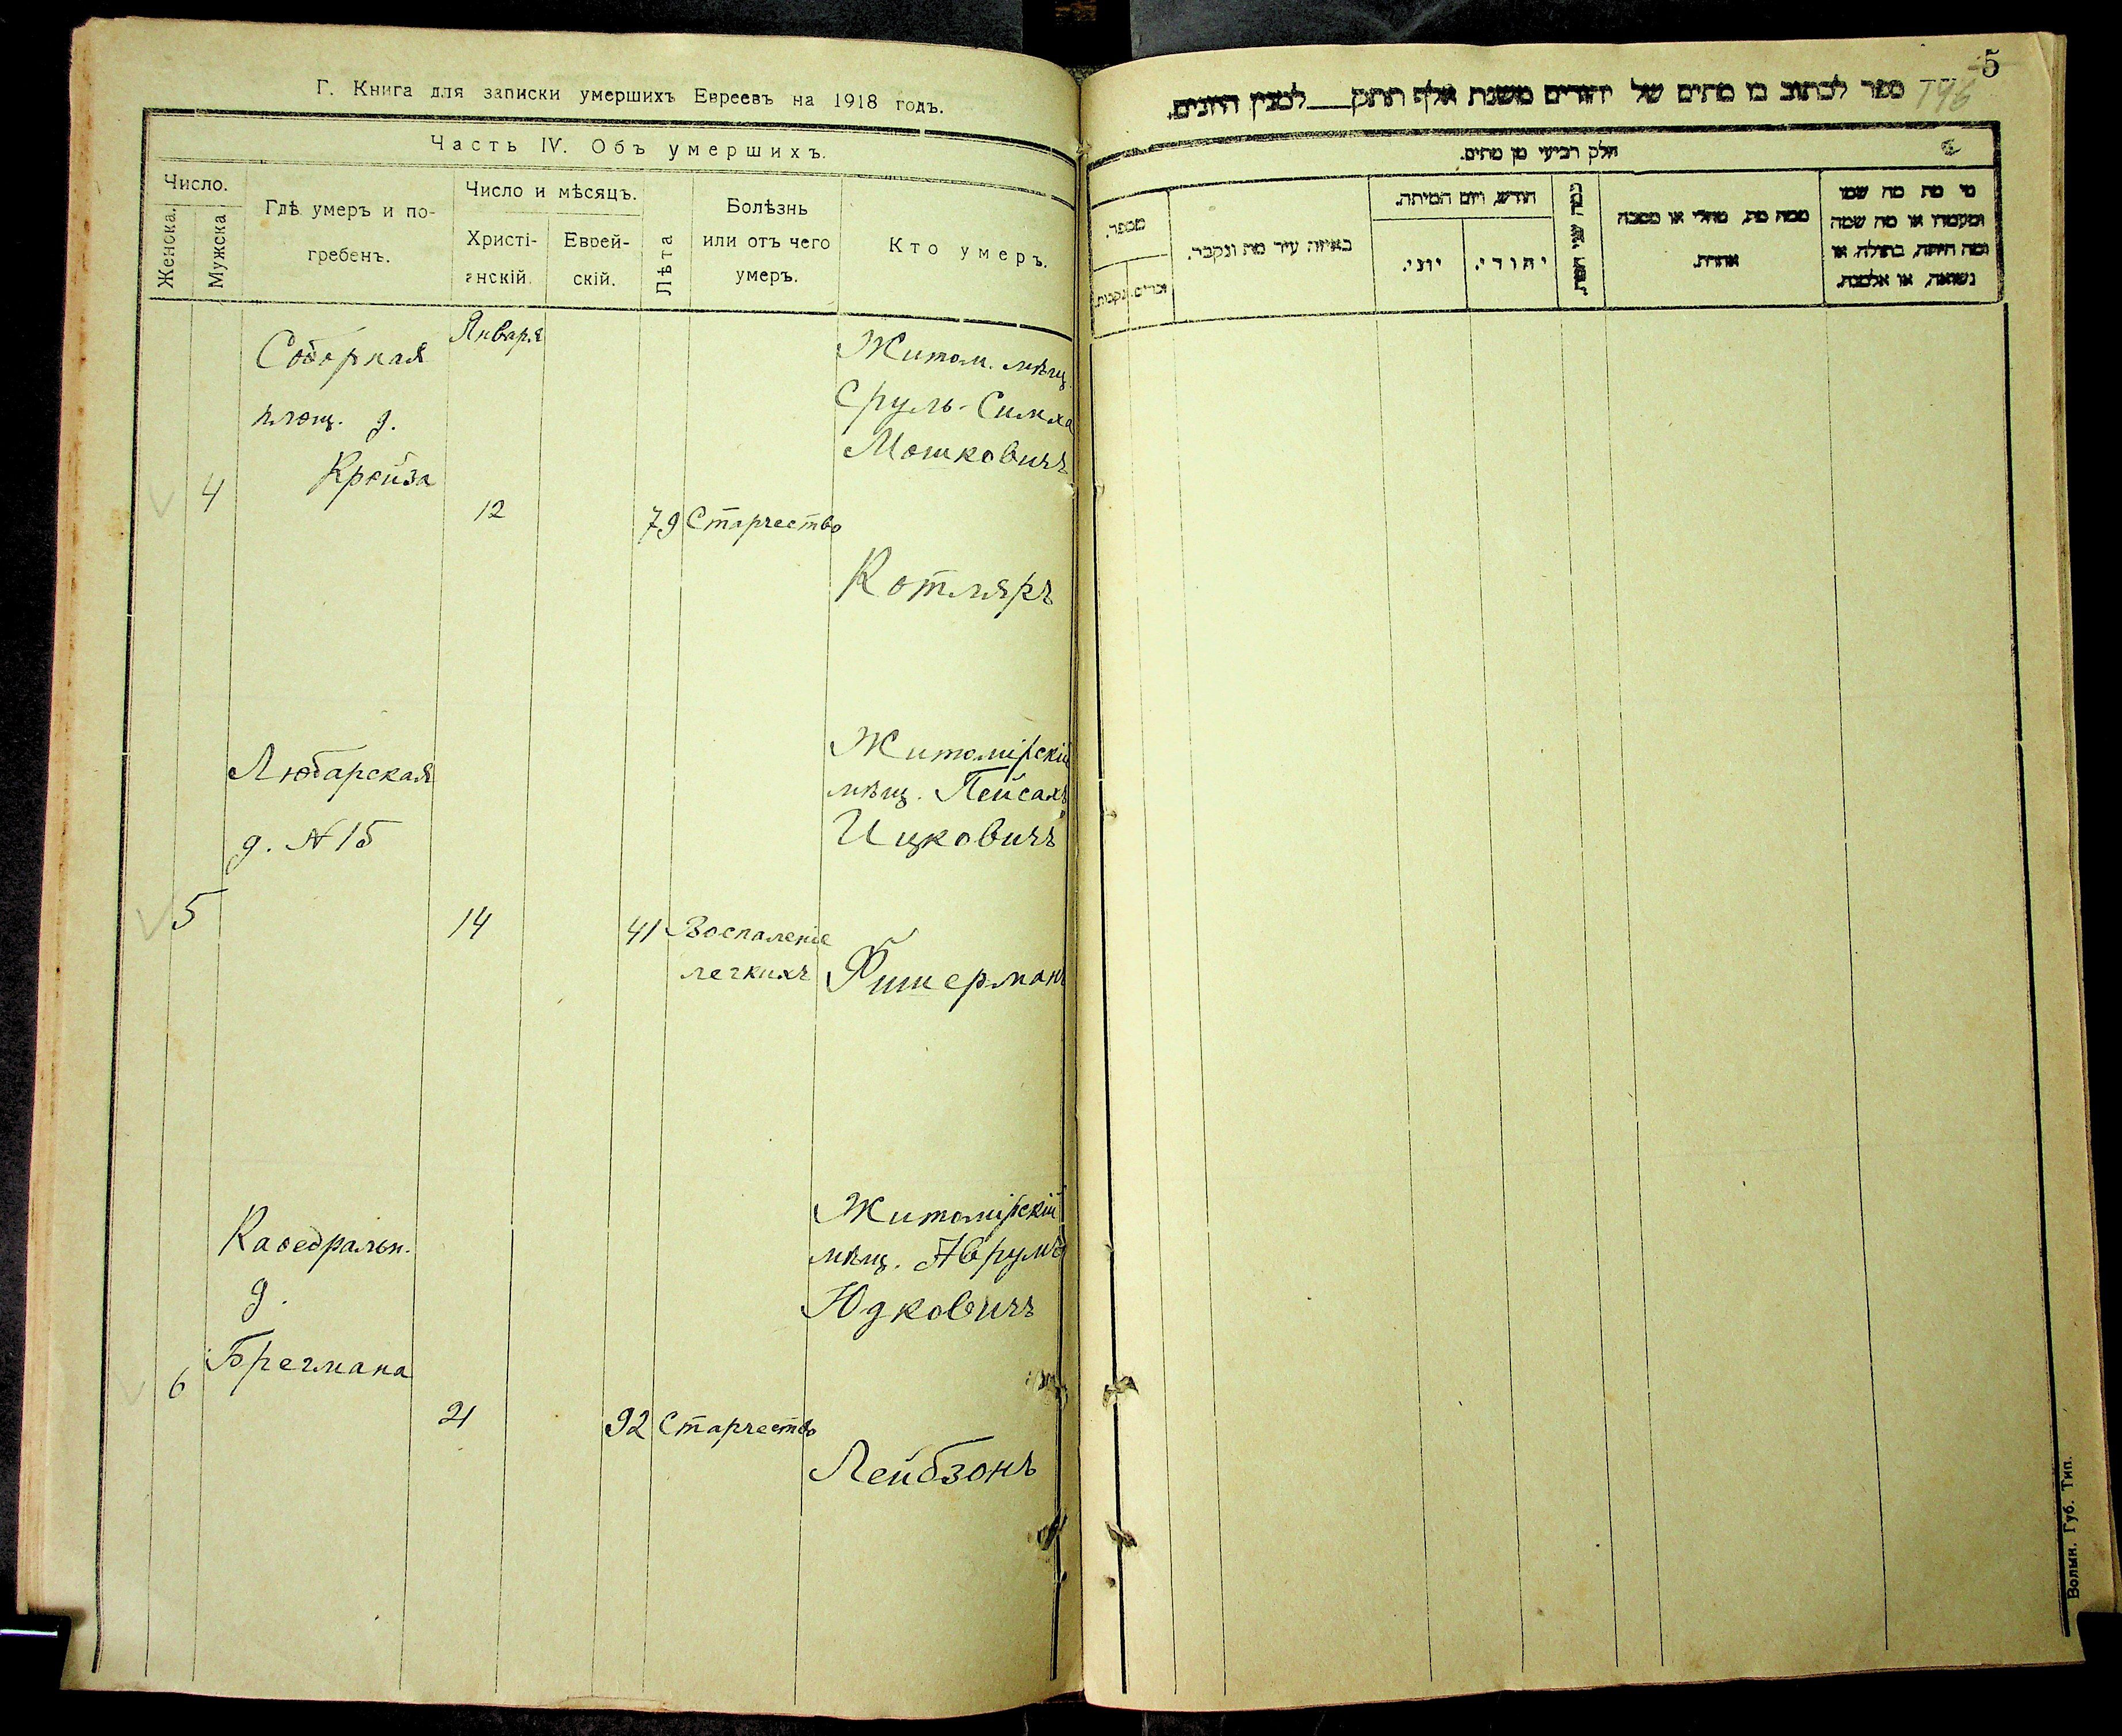 Г. Книга для записки умершихъ Евреевъ на 1918 годъ.
Часть IV. Объ умершихъ.
Число.
Женска.
Мужска
Гдѣ умеръ и по-
гребенъ.
Число и мѣсяцъ.
Христі-
анскій.
Еврей-
скій.
Лѣта
Болѣзнь
или отъ чего
умеръ.
Кто умеръ.
4
Соборная
площ. д.
Кройза
Января
12
79
Старчество
Житом. мѣщ.
Сруль-Симха
Мошковичъ
Котляръ
5
Любарская
д. N 15
14
41
Воспаленіе
легкихъ
Житомірскій
мѣщ. Пейсахъ
Ицковичъ
Фишерманъ
6
Каѳедральн.
д.
Брегмана
21
92
Старчество
Житомірскій
мѣщ. Аврумъ
Юдковичъ
Лейбзонъ
5
196
ספר לכתוב בו מתים של יהודים משנת אלף תתק __ למנין היונים.
חלק רביעי מן מתים.
מי מת מה שמו
ומעמדו או מה שמה
ומה היתה, בתולה, או
נשואה, או אלמנה.
ממה מת, מחלי או מסבה
אחרת.
כמה שני המת.
חודש, ויום המיתה.
יהודי.
יוני.
באיזה עיר מת ונקבר.
מספר.
זכרים.
נקבות.
Волын. Губ. Тип.